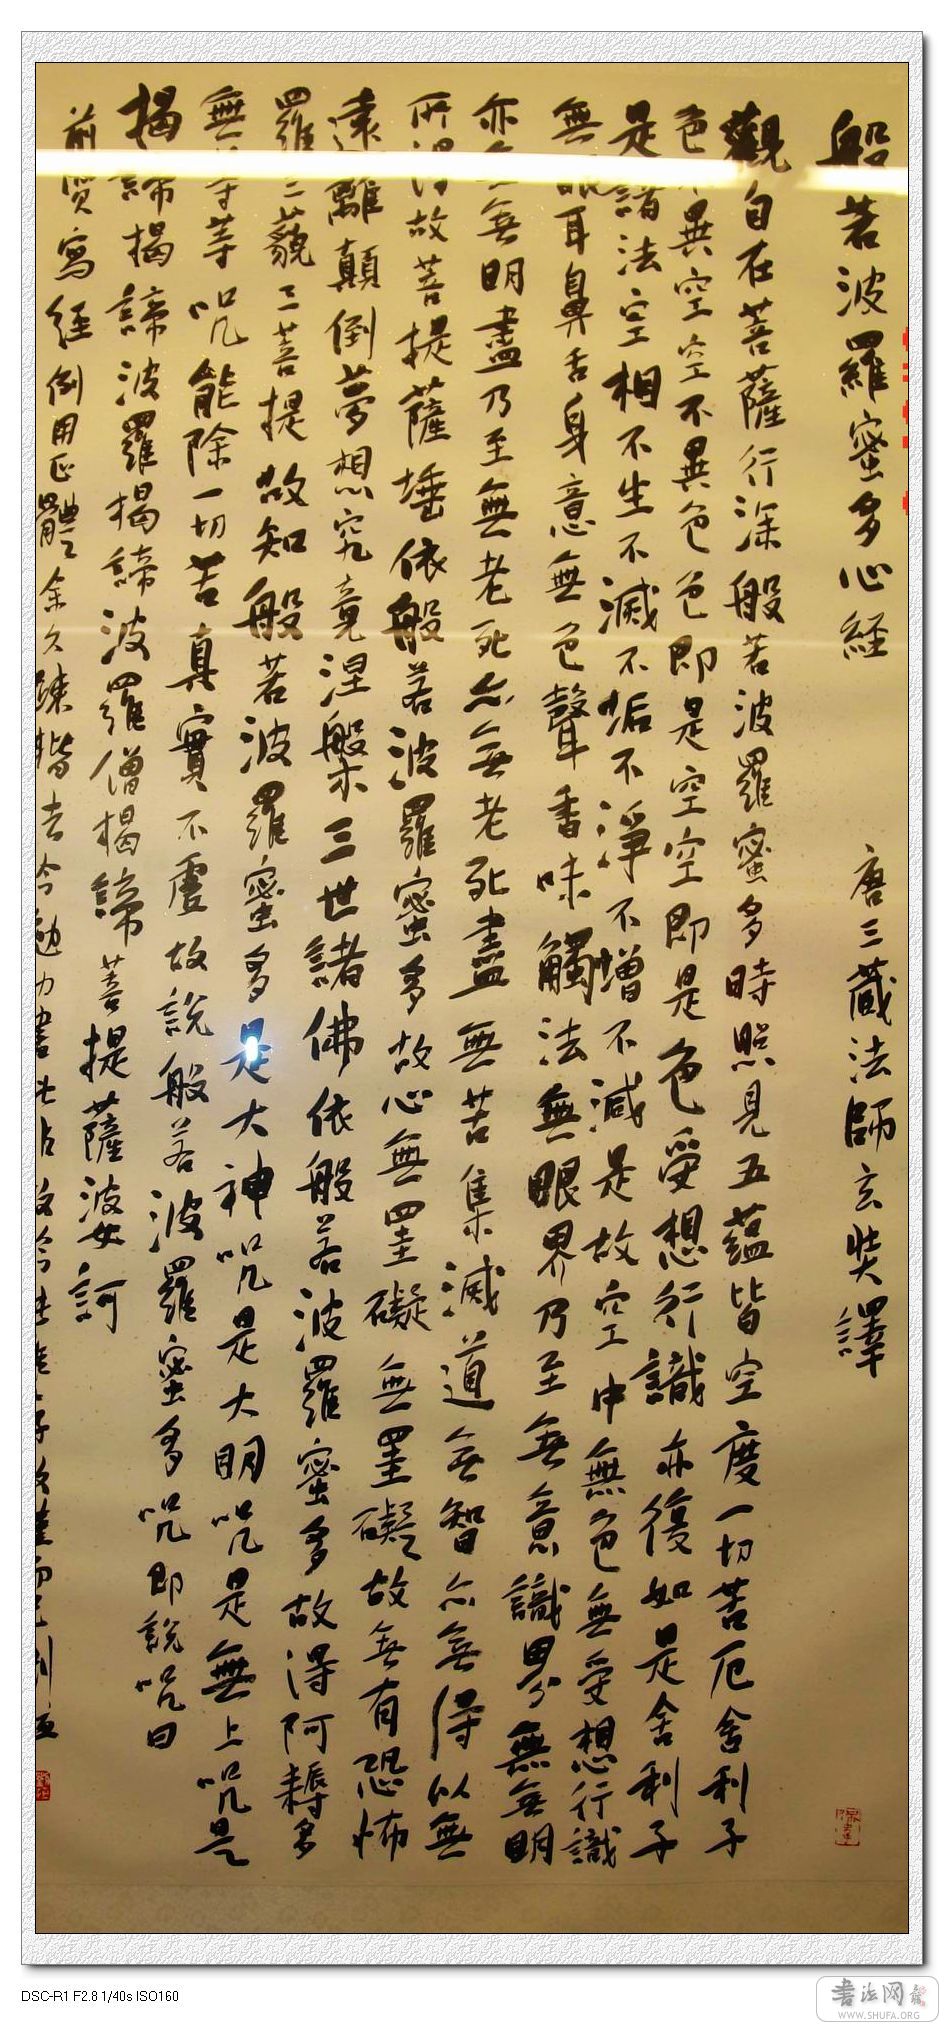 般若波羅蜜多心経 唐三藏法師玄奘譯
觀自在菩薩行深般若波羅蜜多時照見五蘊皆空度一切苦厄舍利子
色不異空空不異色色即是空空即是色受想行識亦復如是舍利子
是諸法空相不生不滅不垢不淨不增不減是故空中無色無受想行識
無眼耳鼻舌身意無色聲香味觸法無眼界乃至無意識界無無明
亦無無明盡乃至無老死亦無老死盡無苦集滅道無智亦無得以無
所得故菩提薩埵依般若波羅蜜多故心無罣礙無罣礙故無有恐怖
遠離顛倒夢想究竟涅槃三世諸佛依般若波羅蜜多故得阿耨多
羅三藐三菩提故知般若波羅蜜多是大神咒是大明咒是無上咒是
無等等咒能除一切苦真實不虛故說般若波羅蜜多咒即說咒曰
揭諦揭諦波羅揭諦波羅僧揭諦菩提薩婆訶
前賢寫經例用正體余久疎楷法今勉力書
DSC-R1 F2.8 1/40s ISO160
書法网
WWW.SHUFA.ORG